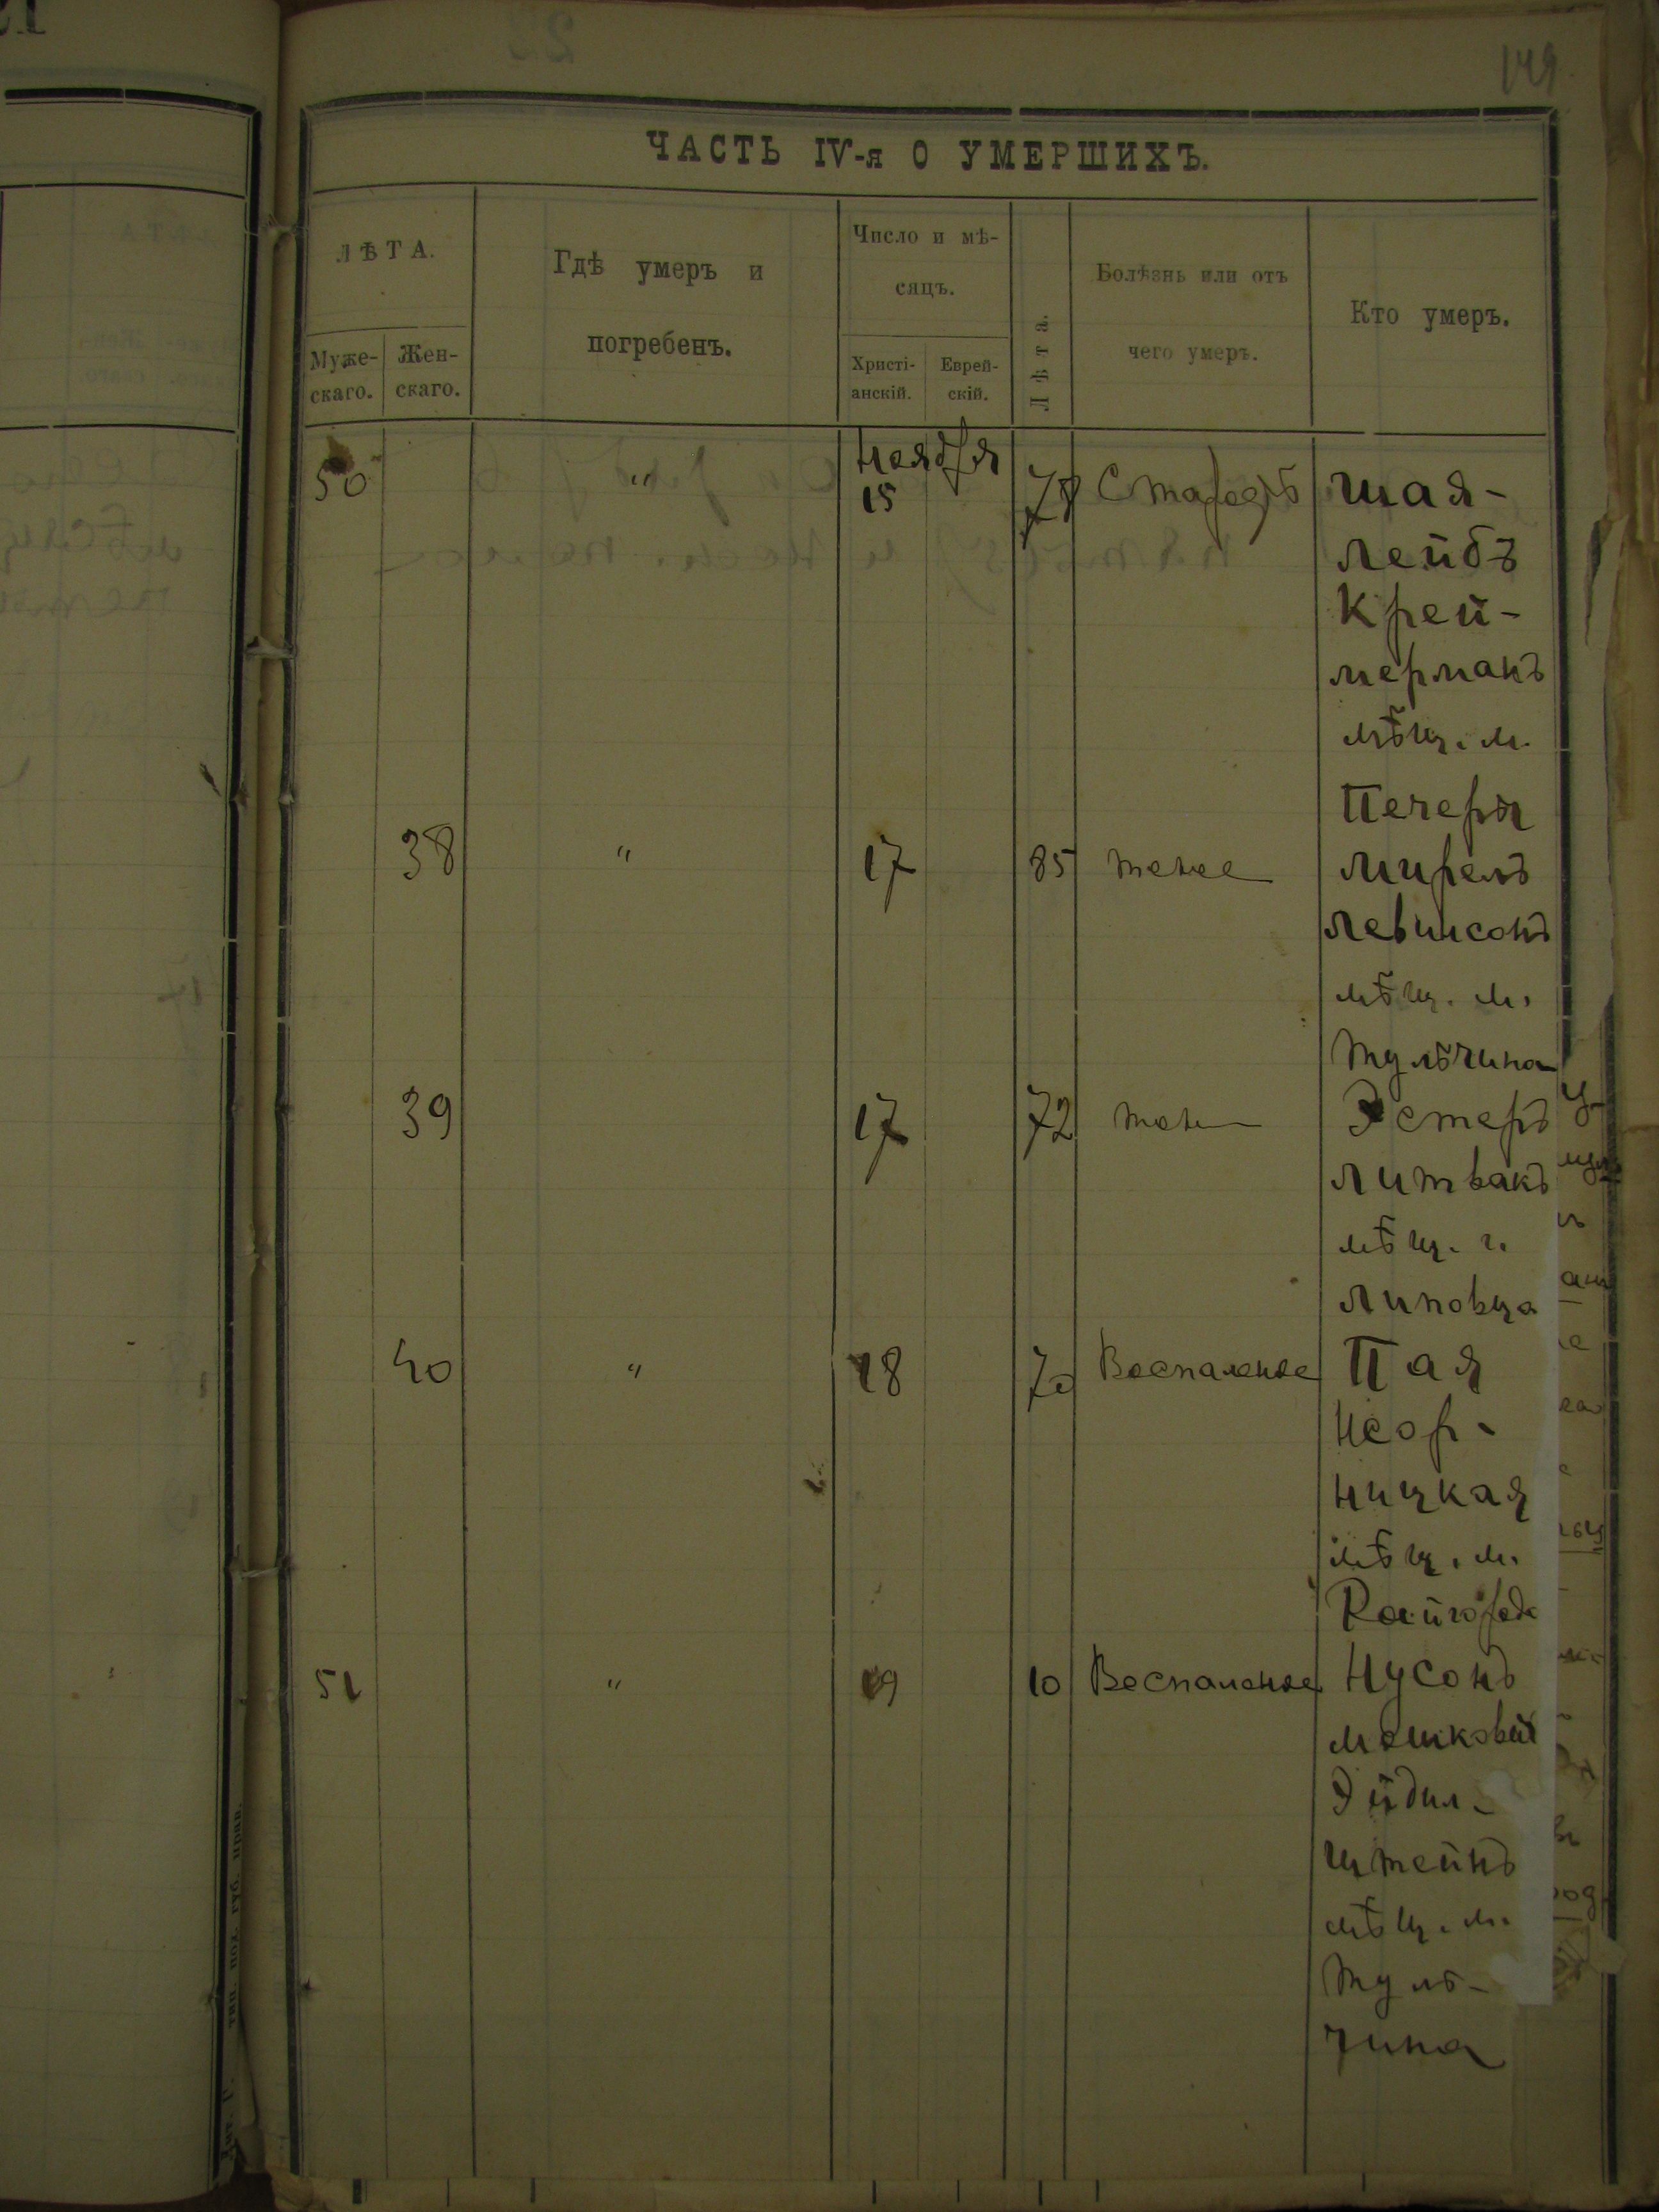 149
ЧАСТЬ IV-я О УМЕРШИХЪ.
ЛѢТА.
Муже-
скаго.
Жен-
скаго.
Гдѣ умеръ и
погребенъ.
Число и мѣ-
сяцъ.
Христі-
анскій.
Еврей-
скій.
Лѣта.
Болѣзнь или отъ
чего умеръ.
Кто умеръ.
Ноября
50 " 15 78 Старость Шая-
Лейбъ
Крей-
мерманъ
мѣщ. м.
Печеры
38 " 17 85 тоже Мирель
Левинсонъ
мѣщ. м.
Тульчина
39 17 72 Эстеръ
Литвакъ
мѣщ. г.
Липовца
40 " 18 70 Воспаленіе Пая
Неор-
ницкая
мѣщ. м.
Райгорода
51 " 19 10 Воспаленіе Нусонъ
Мошковъ
Эйдил-
штейнъ
мѣщ. м.
Туль-
чина